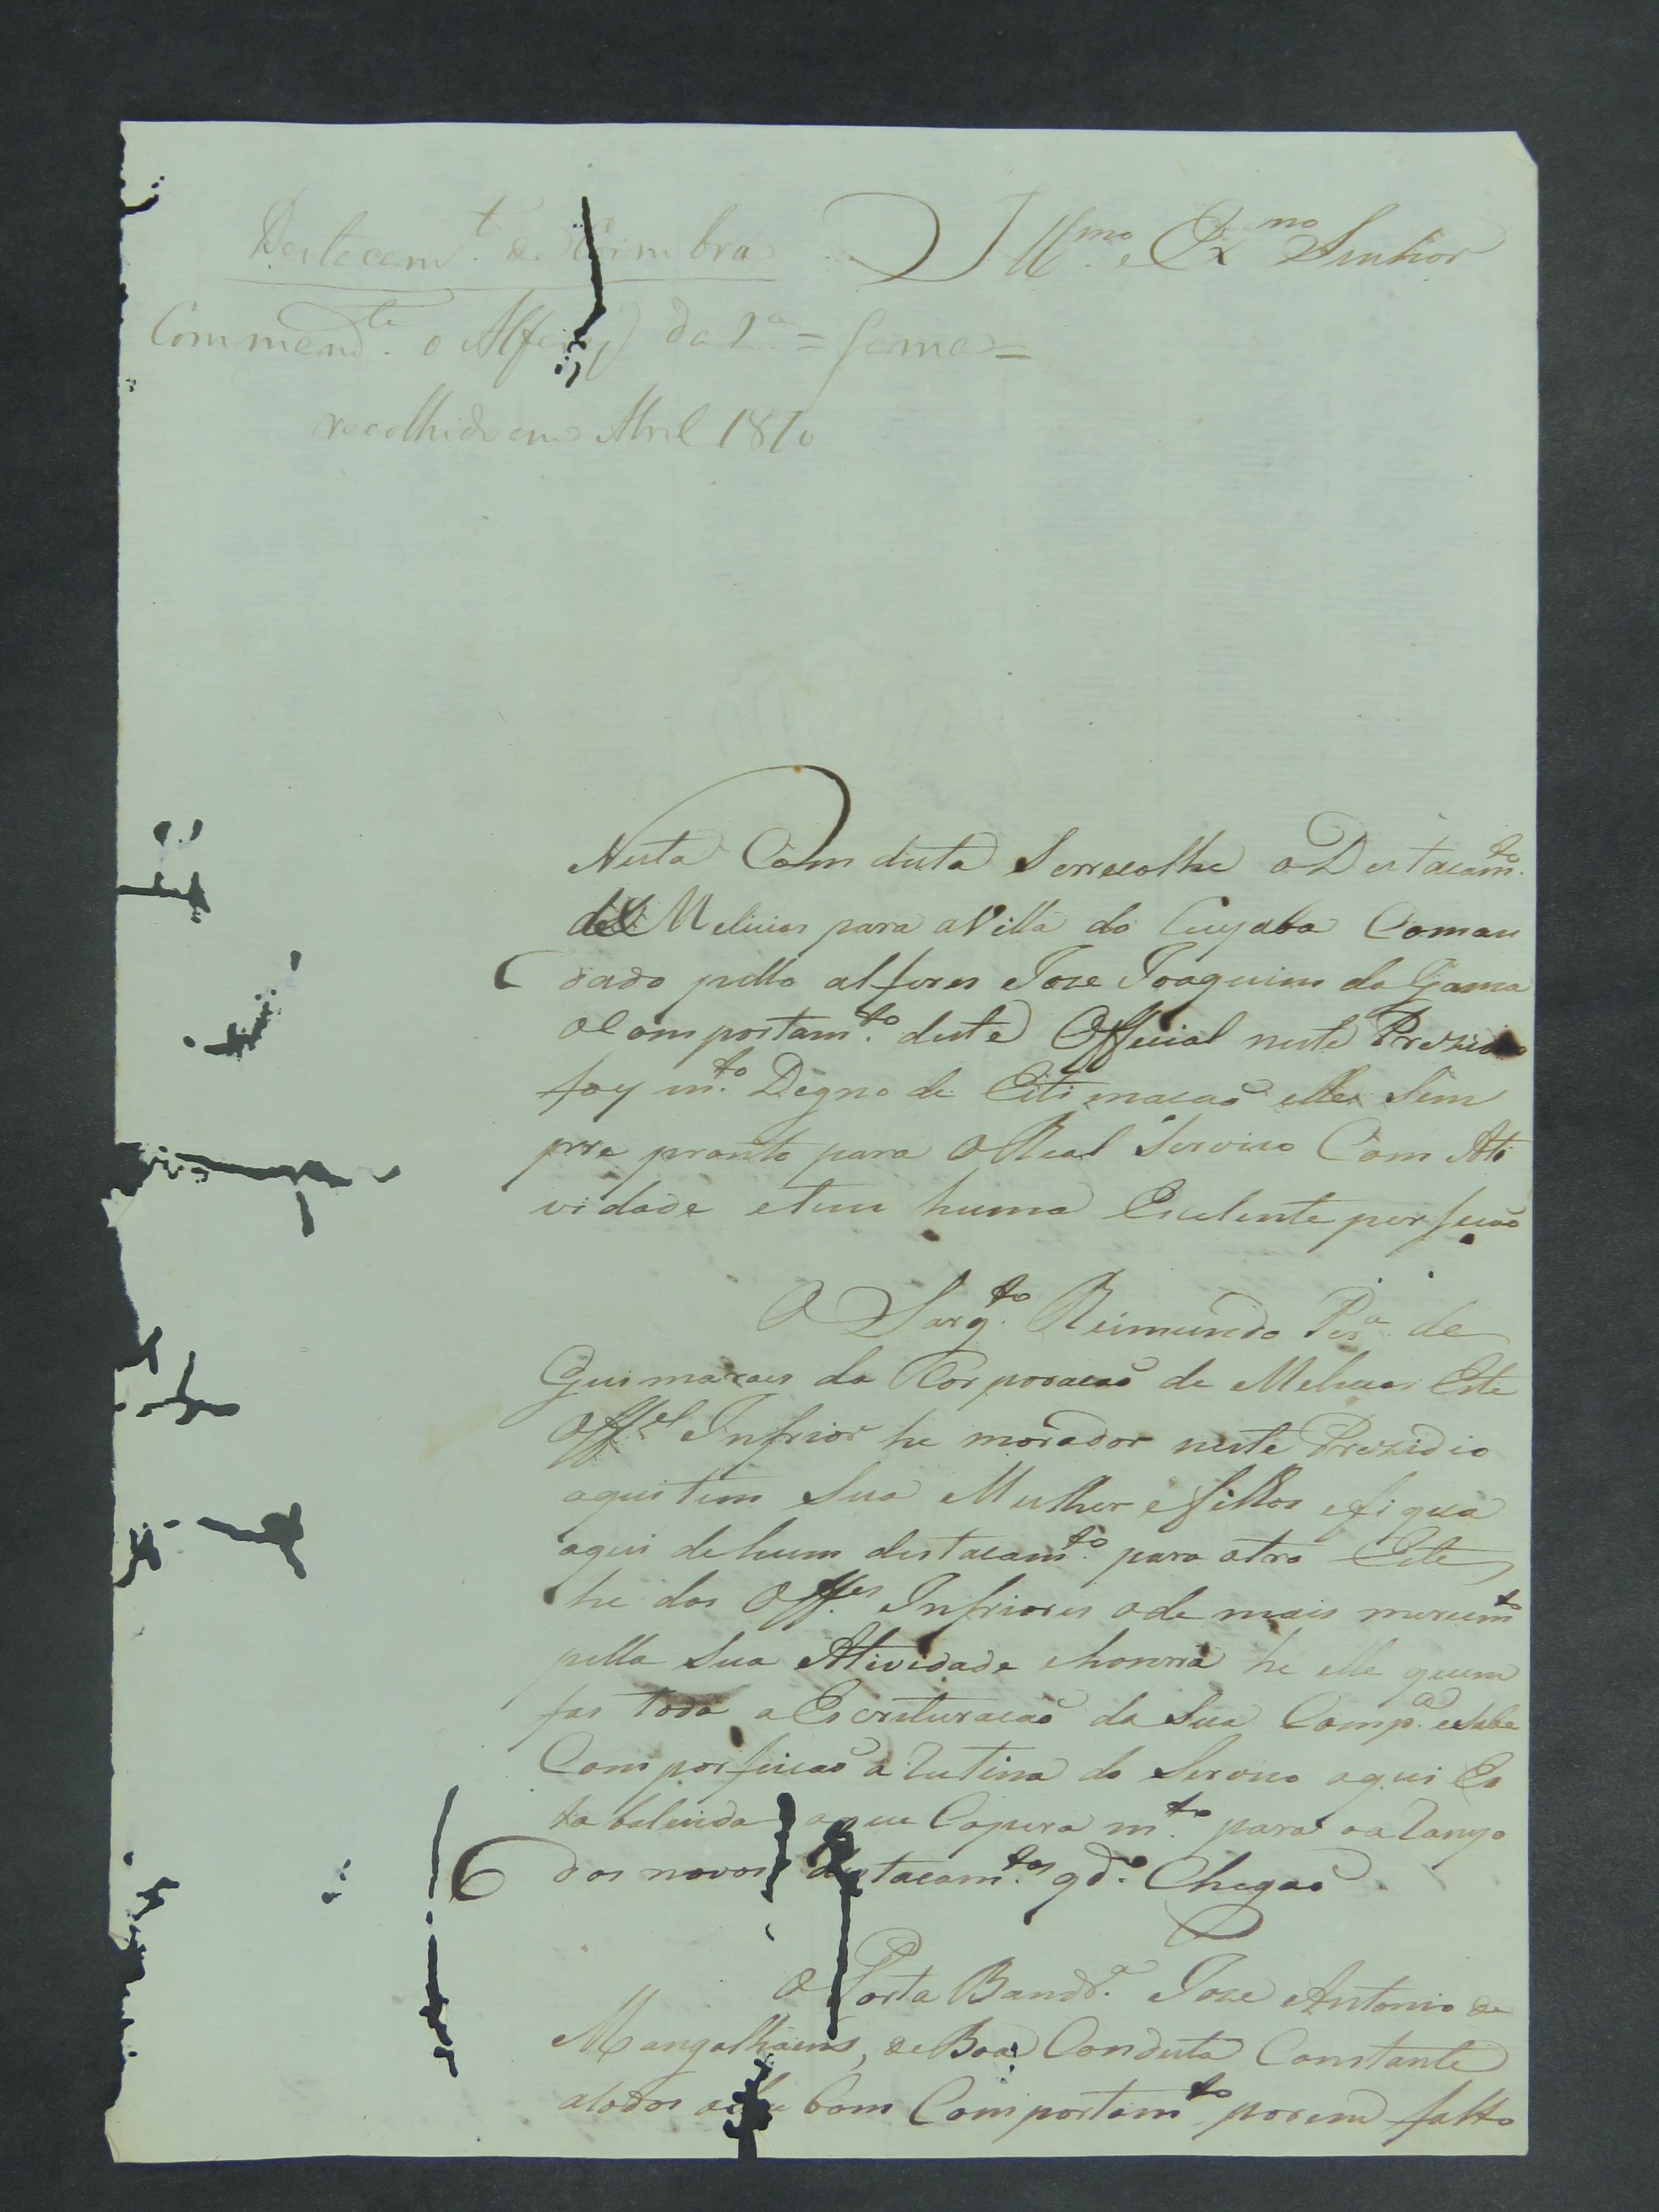 Destacam.t de Coimbra
Commend.te o Alferes da 2.a = Gama =
recolhido em Abril 1810
Ill.mo e Ex.mo Senhor
Nesta Comduta serrecolhe o Destacam.to
de Melicias para aVilla do Cuyaba Coman
dado pello alferes Joze Joaquim da Gama
o Comportam.to deste Official neste Prezidio
foy m.to Degno de Estimacaõ elle Sem
pre pronto para o Real Servico Com Ati
vidade etem huma Escelente perfeicaõ
O Sarg.to Reimundo Per.a de
Guimaraes da Corporacaõ de Melicias Este
Off.el Infrior he morador neste Prezidio
aqui tem Sua Mulher e filhos efiqua
aqui dehum destacam.to para otro Este
he dos Off.es Infriores ode mais merecim.to
pella Sua Atividade ehonrra he elle quem
fas toda a Escrituracaõ da Sua Comp.a esabe
Com porfeicaõ a Rutina do Servico aqui Es
tabalecida oque Copera m.to para o aRanjo
dos novos destacam.tos qd.o Chegaõ
O Porta Band.ra Joze Antonio de
Mangalhaens, de Boa Conduta Constante
atodos bom Comportam.to porem falto